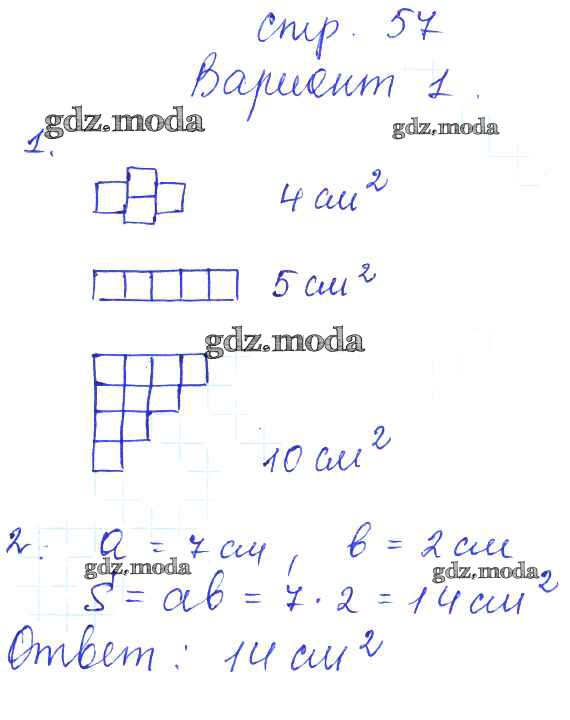 стр. 57
Вариант 1.
gdz.moda
gdz.moda
1.
4 см²
5 см²
gdz.moda
10 см²
2. a = 7 см, b = 2 см
gdz.moda
gdz.moda
S = ab = 7 · 2 = 14 см²
Ответ: 14 см²